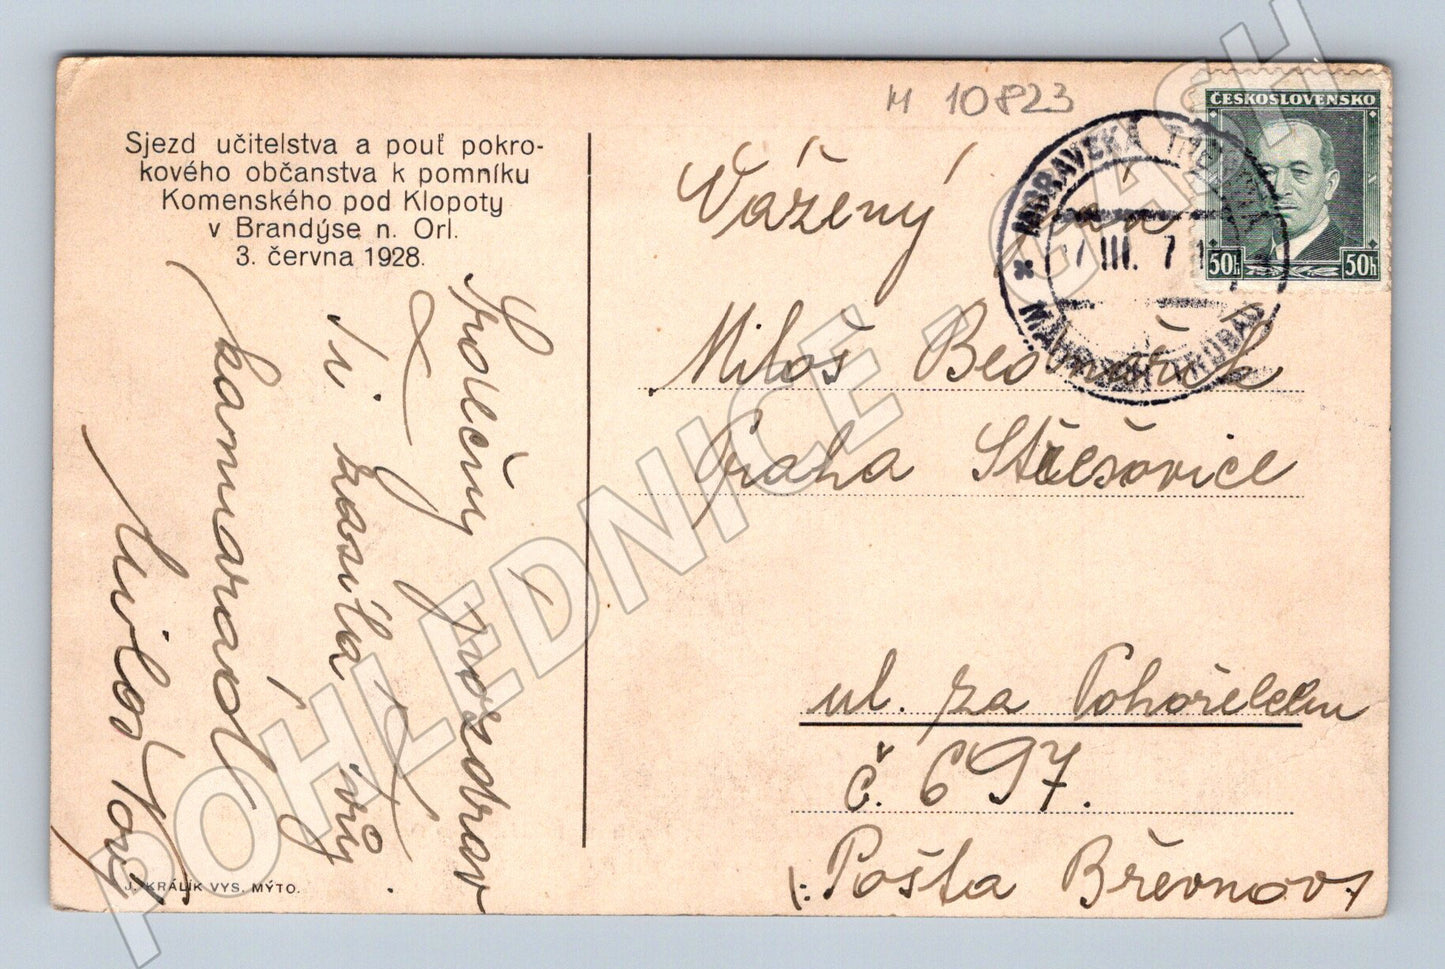 M 10823
Sjezd učitelstva a pouť pokro-
kového občanstva k pomníku
Komenského pod Klopoty
v Brandýse n. Orl.
3. června 1928.
Srdečný pozdrav
Ti zasílá Tvůj
kamarád
Miloš
J. KRÁLÍK VYS. MÝTO.
ČESKOSLOVENSKO
50h 50h
MORAVSKÁ TŘEBOVÁ
III. 7
MÄHRISCH TRÜBAU
Vážený pán
Miloš
Praha Střešovice
ul. za Pohořelcem
č. 697.
(: Pošta Břevnov)
POHLEDNICE - CASH